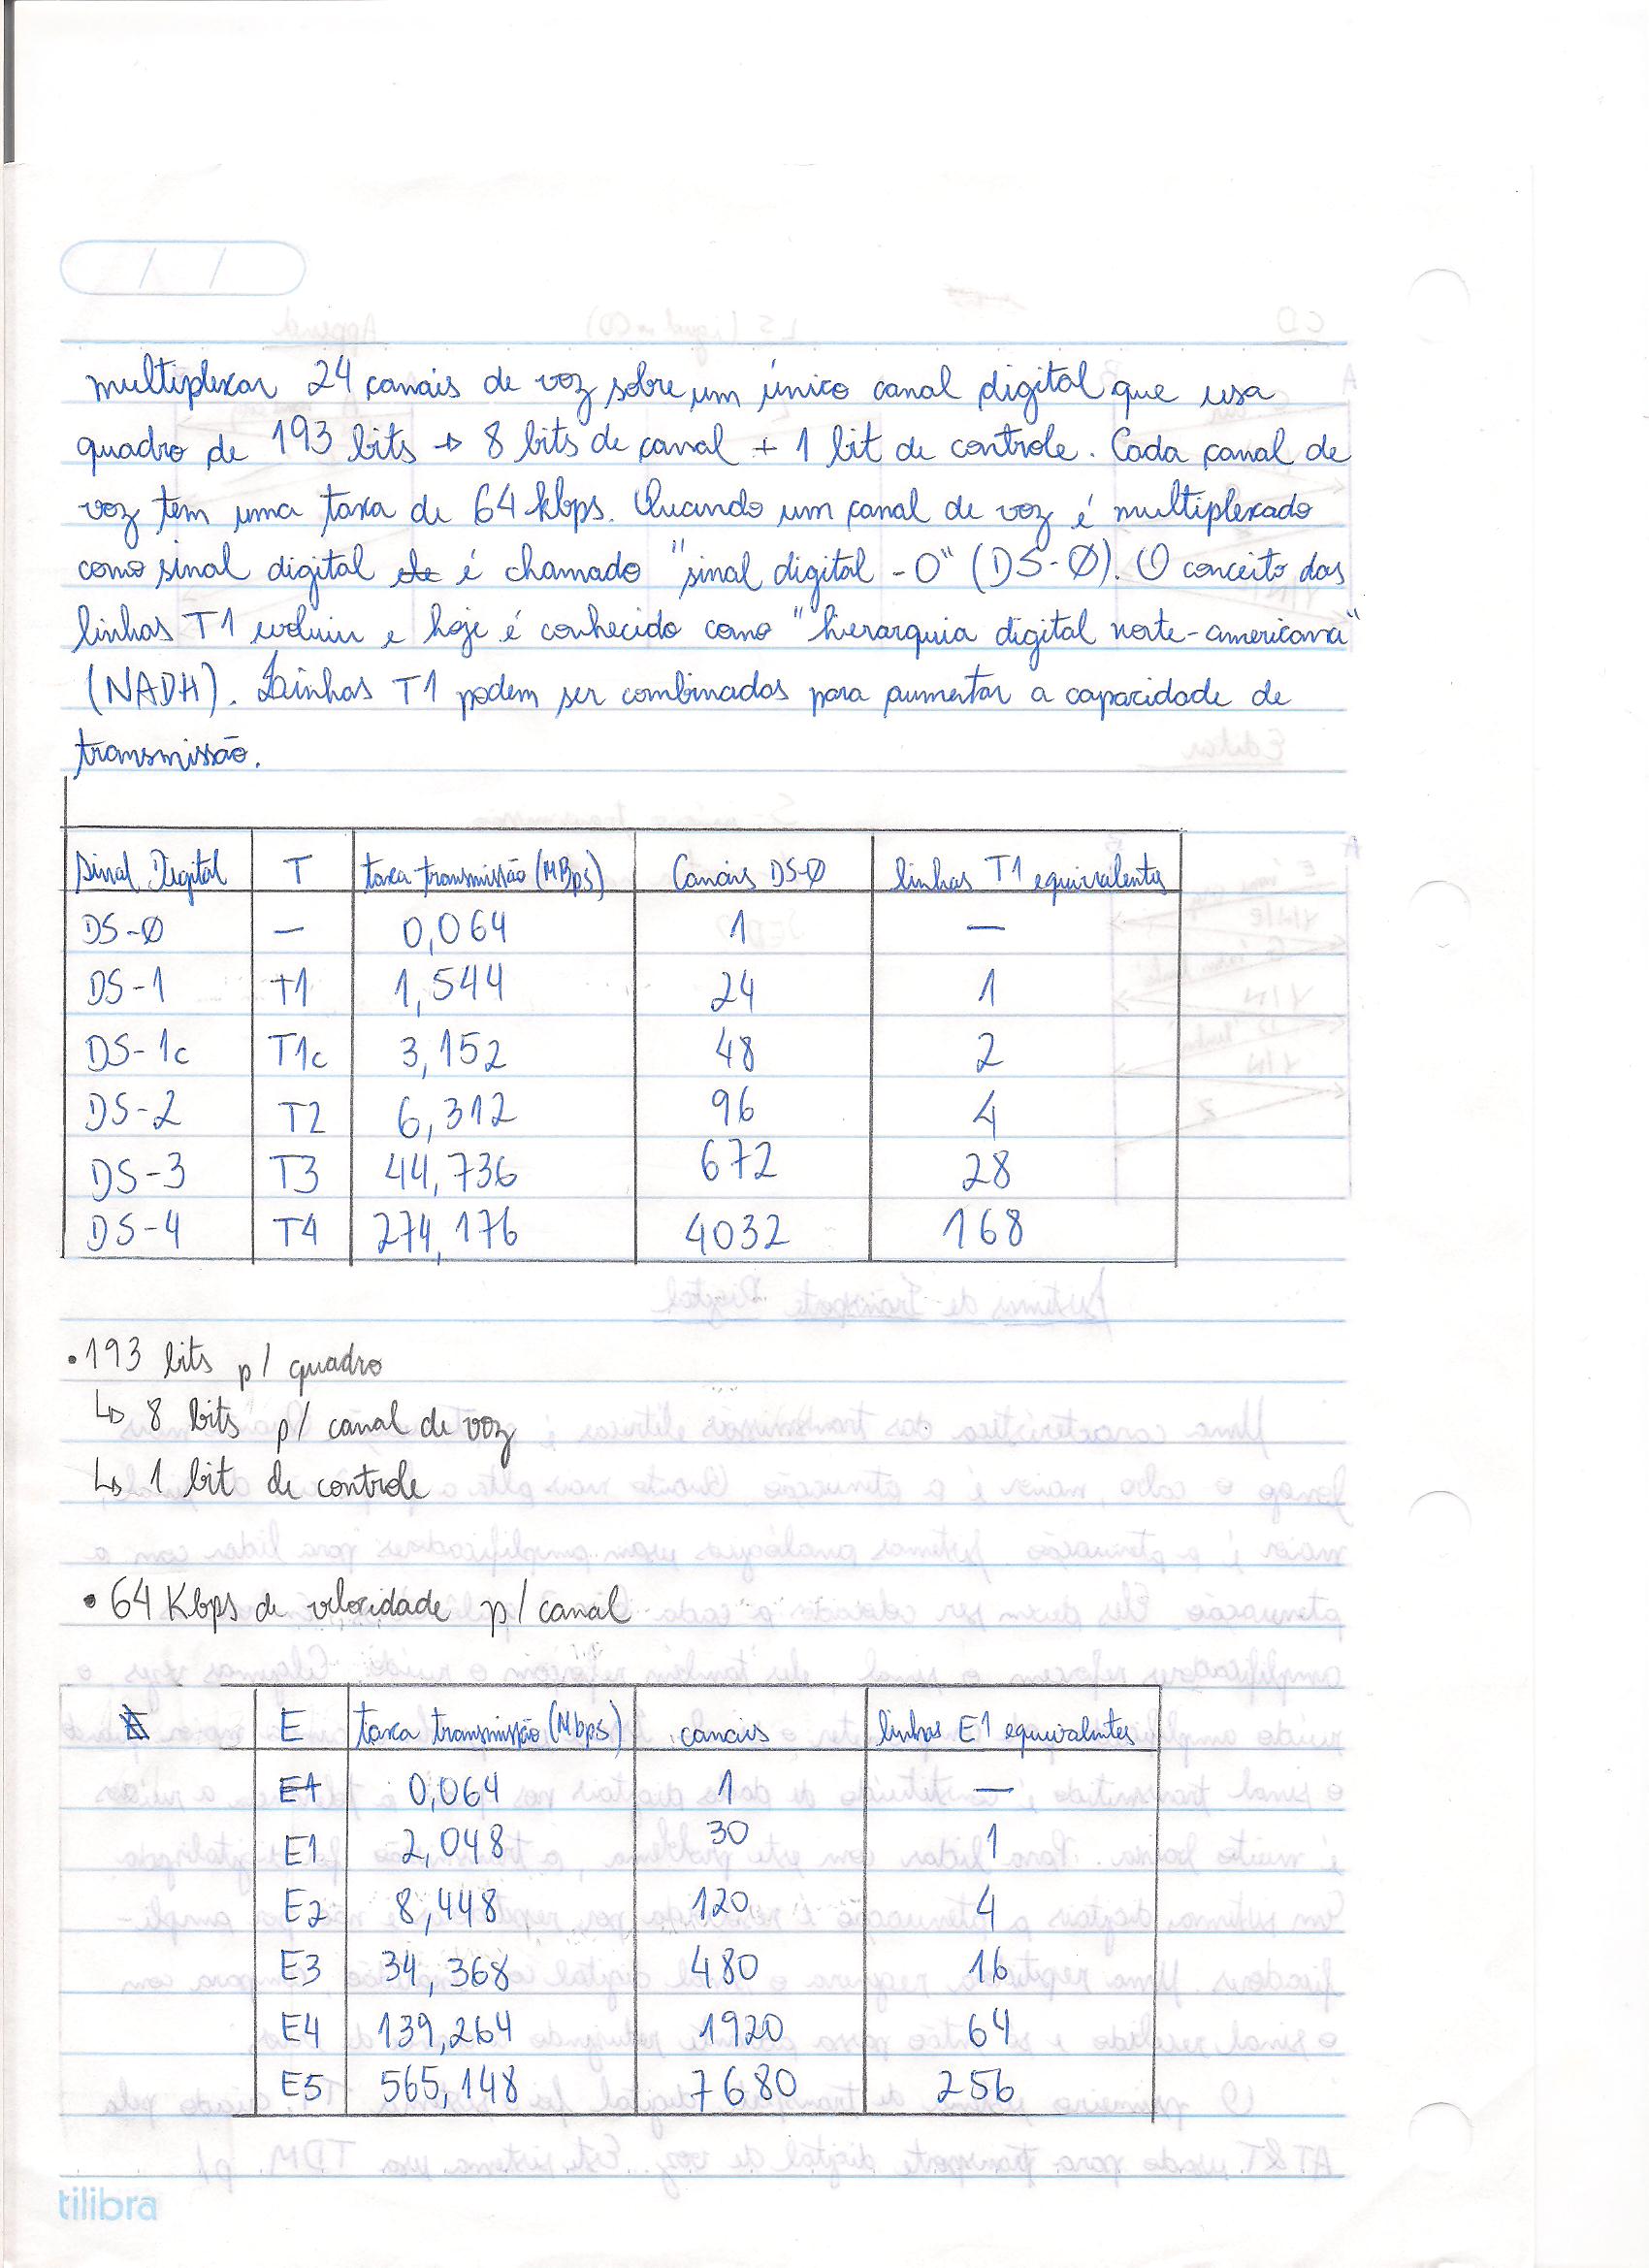 multiplexar 24 canais de voz sobre um único canal digital que usa
quadro de 193 bits → 8 bits de canal + 1 bit de controle. Cada canal de
voz tem uma taxa de 64 kbps. Quando um canal de voz é multiplexado
como sinal digital ele é chamado "sinal digital - 0" (DS-Ø). O conceito das
linhas T1 evoluiu e hoje é conhecido como "hierarquia digital norte-americana"
(NADH). Linhas T1 podem ser combinadas para aumentar a capacidade de
transmissão.
Sinal Digital T taxa transmissão (MBps) Canais DS-Ø linhas T1 equivalentes
DS-Ø — 0,064 1 —
DS-1 T1 1,544 24 1
DS-1c T1c 3,152 48 2
DS-2 T2 6,312 96 4
DS-3 T3 44,736 672 28
DS-4 T4 274,176 4032 168
• 193 bits p/ quadro
↳ 8 bits p/ canal de voz
↳ 1 bit de controle
• 64 Kbps de velocidade p/ canal
E taxa transmissão (Mbps) canais linhas E1 equivalentes
E1 0,064 1 —
E1 2,048 30 1
E2 8,448 120 4
E3 34,368 480 16
E4 139,264 1920 64
E5 565,148 7680 256
tilibra